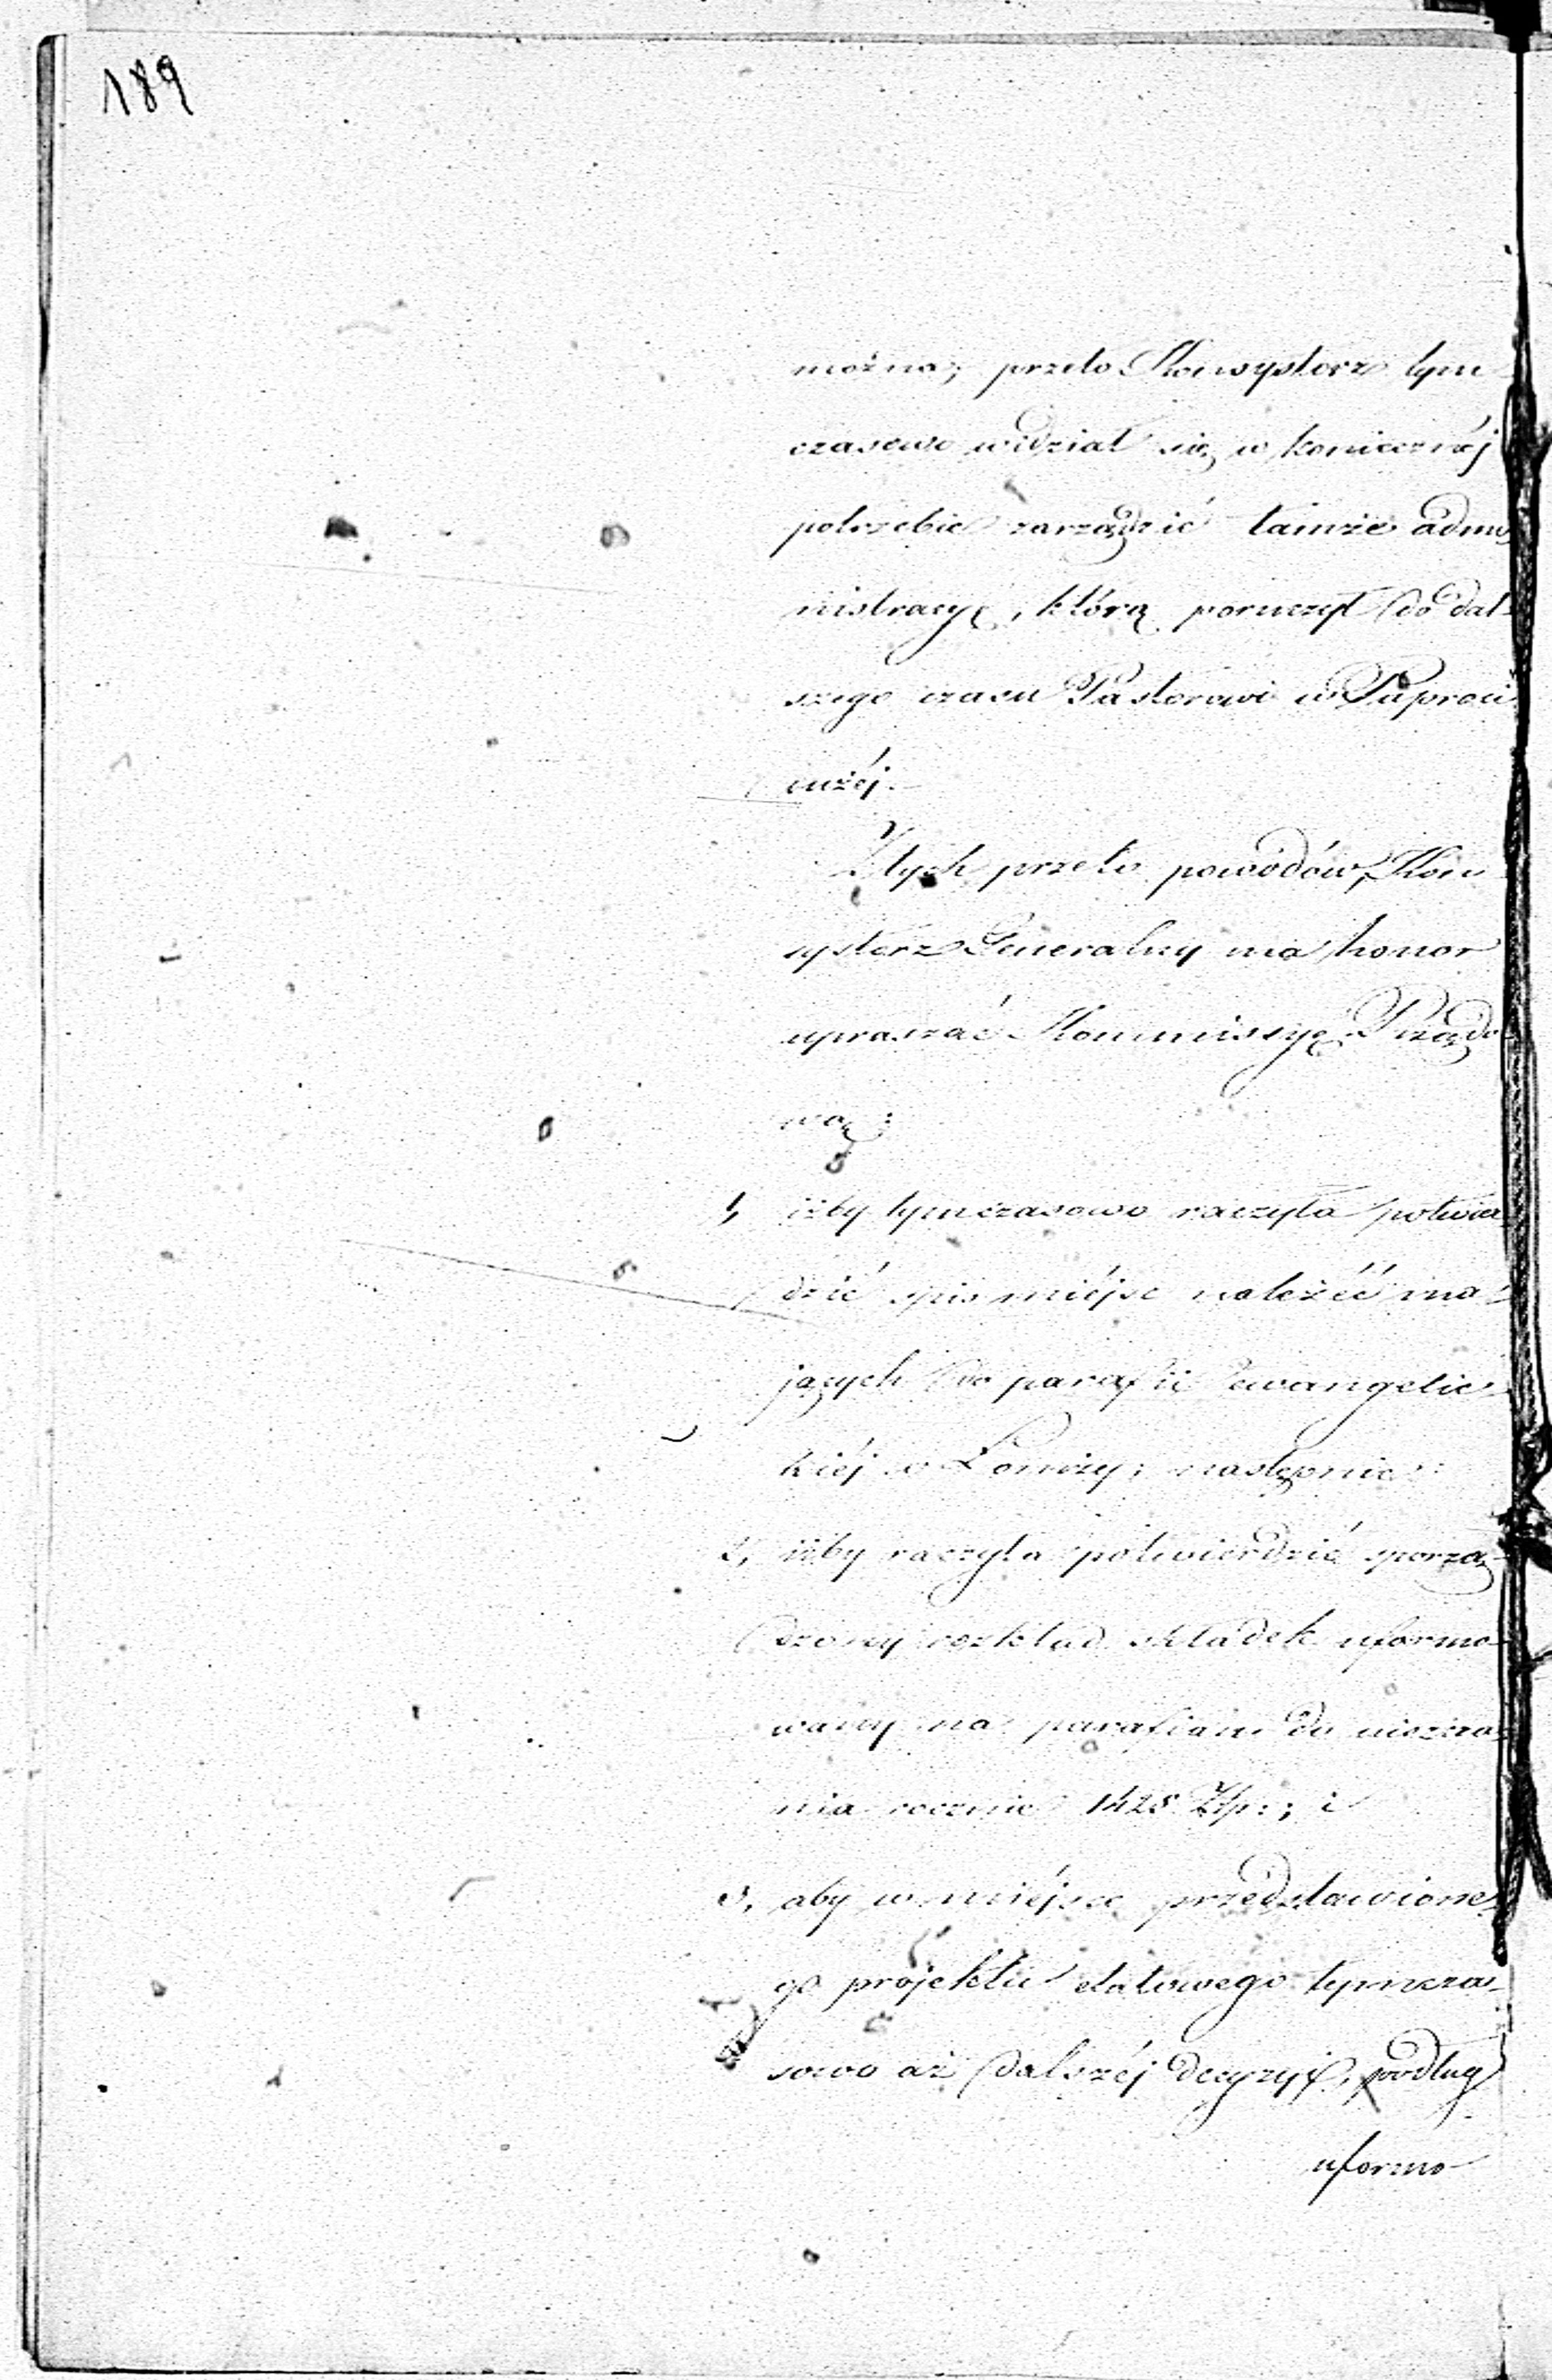 189
można; przeto Konsystorz tym
czasowo widział się w koniecznéj
potrzebie zarządzić tamże admi
nistracyę, którą poruczył do dal-
szego czasu Pastorowi w Paproci
użéj.
Z tych przeto powodów, Kon
systorz Generalny ma honor
upraszać Kommissyę Rządo
wą:
1, iżby tymczasowo raczyła potwier
dzić spis miéjsc należéć ma-
jących do parafii Ewangelic-
kiéj w Łomży; następnie:
2, iżby raczyła potwierdzić sporzą-
dzony rozkład składek uformo-
wany na parafian do uiszcza-
nia rocznie 1425 Złp.; i
3, aby w miéjsce przedstawione-
go projektu etatowego tymcza-
sowo aż dalszéj decyzyi, podług
uformo